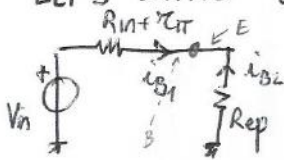 Rin + rπ
E
iB1
iB2
B
Vin
+
Rep